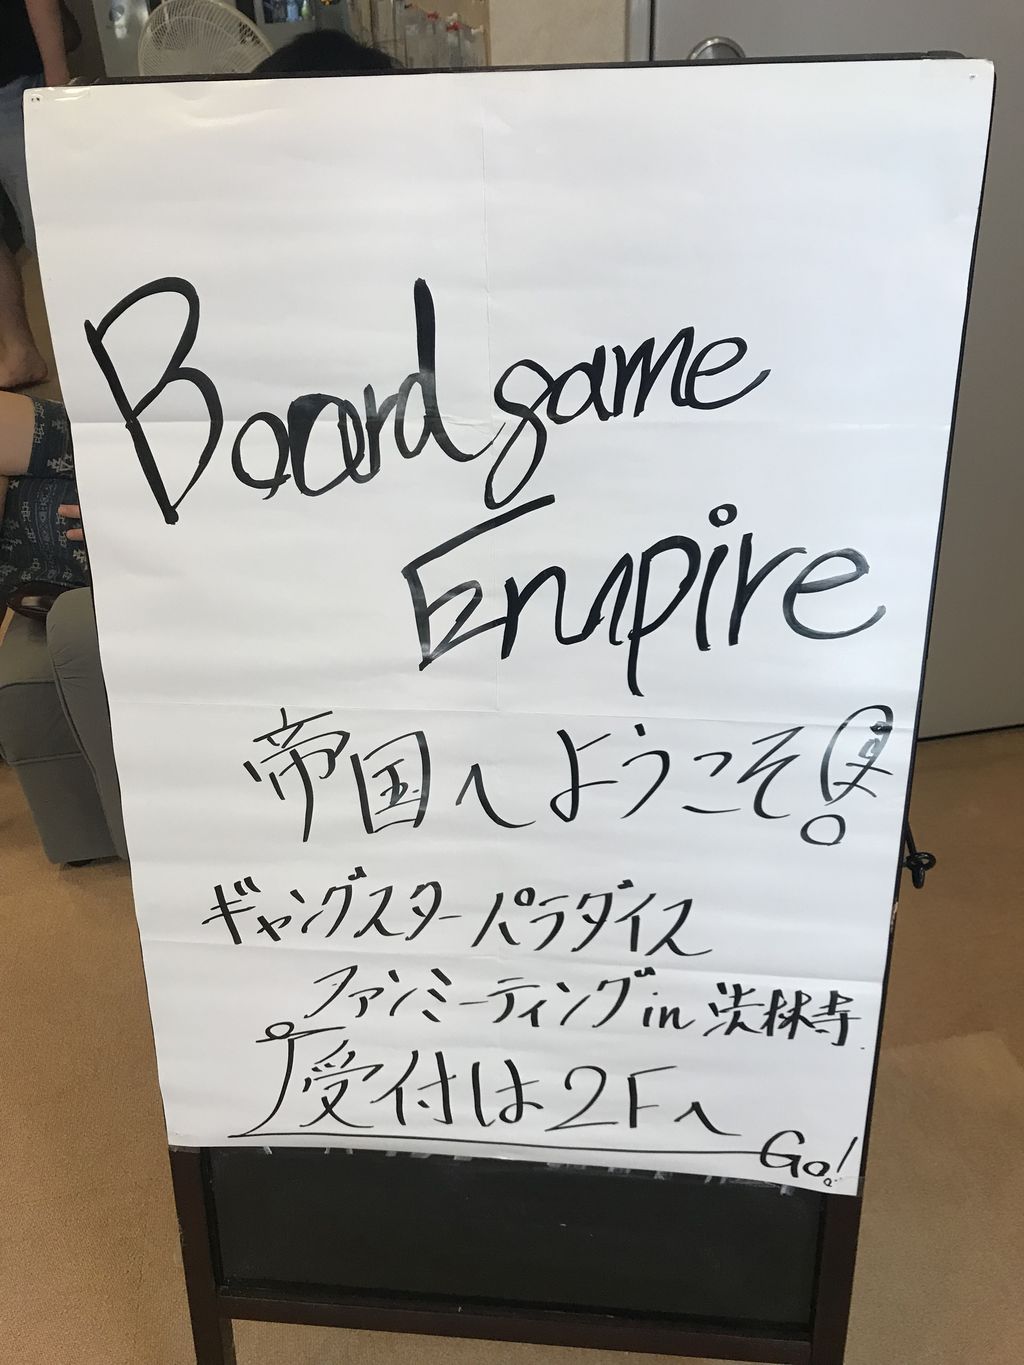 Boardgame
Empire
帝国へようこそ!
ギャングスターパラダイス
ファンミーティング in 渋林寺
受付は2Fへ
Go!